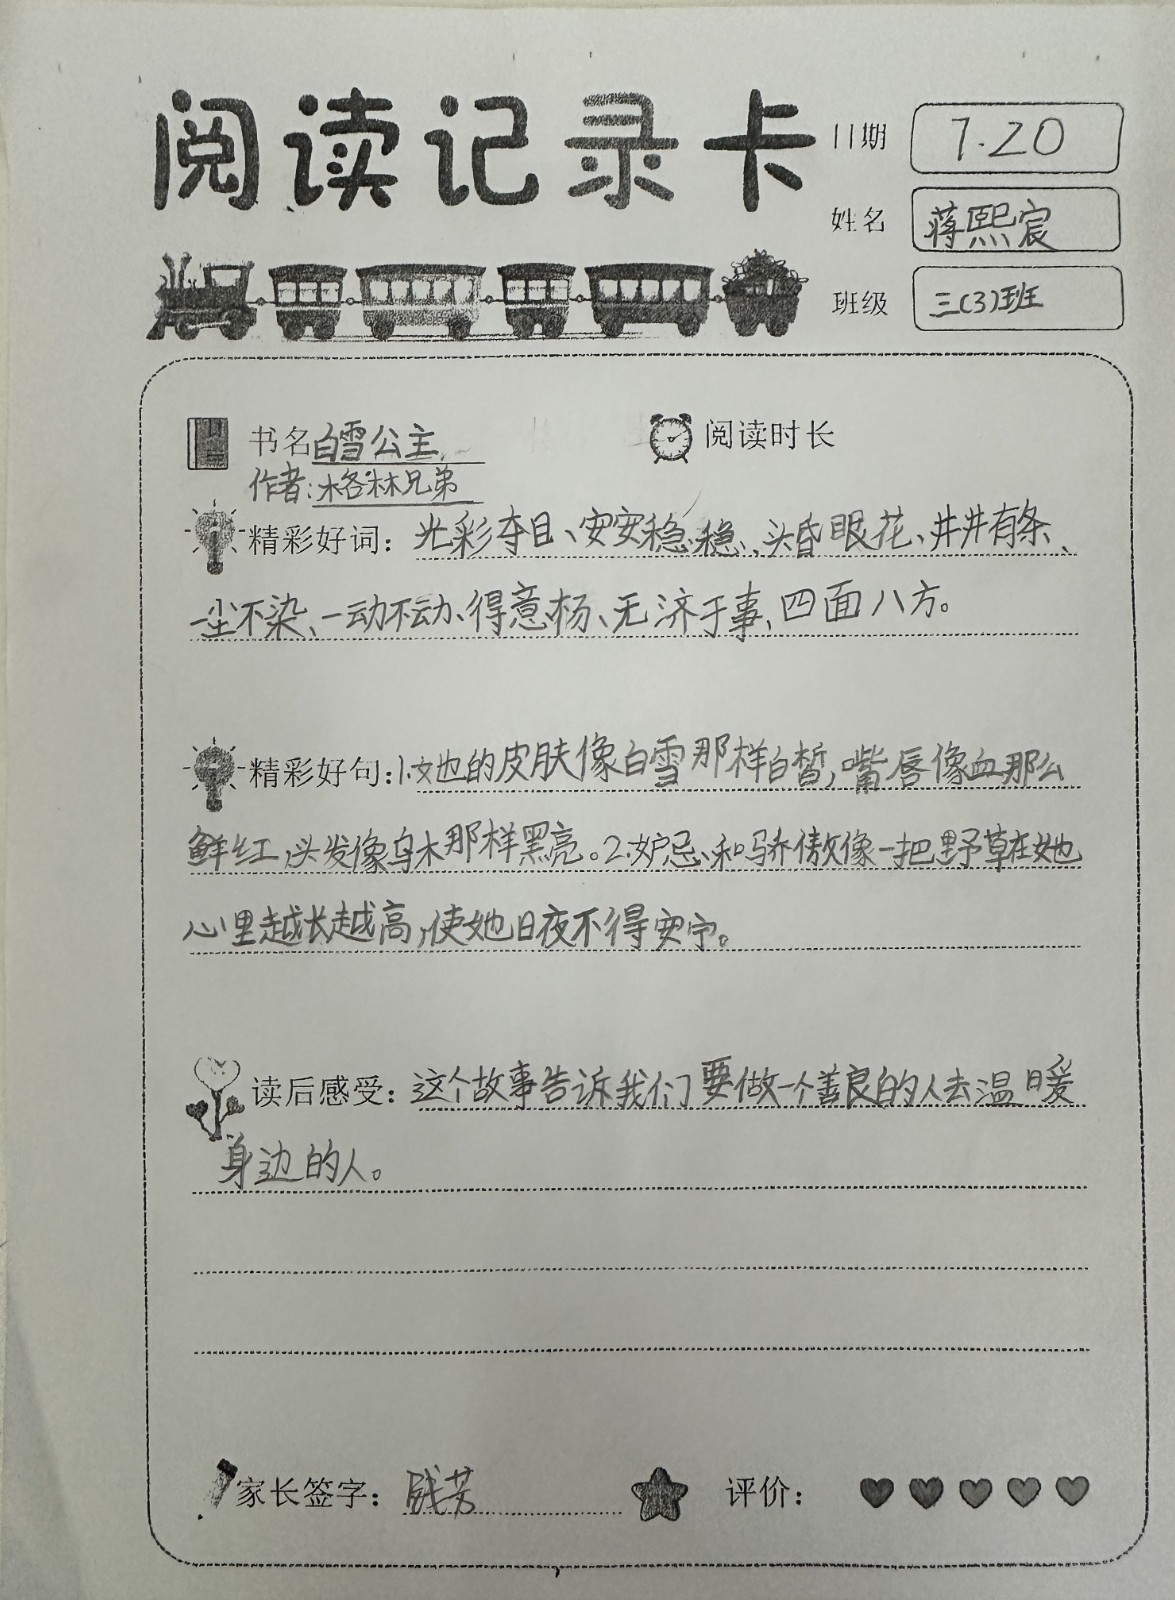 阅读记录卡
日期 7.20
姓名 蒋熙宸
班级 三(3)班
书名 白雪公主
阅读时长
作者:格林兄弟
精彩好词:光彩夺目、安安稳稳、头昏眼花、井井有条、
一尘不染、一动不动、得意杨、无济于事、四面八方。
精彩好句:1.她的皮肤像白雪那样白皙,嘴唇像血那么
鲜红,头发像乌木那样黑亮。2.妒忌和骄傲像一把野草在她
心里越长越高,使她日夜不得安宁。
读后感受:这个故事告诉我们要做一个善良的人去温暖
身边的人。
家长签字: 芳
评价: